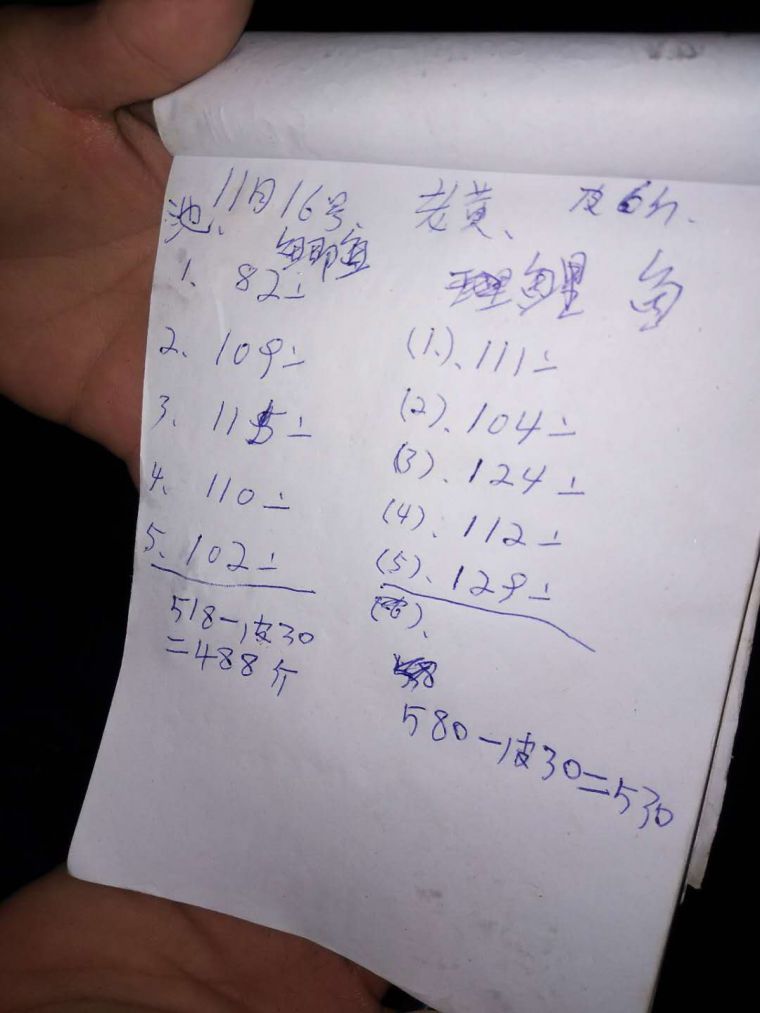 11月16号、 老黄、 皮6斤.
池、 鲫鱼
1、82斤
2、109斤
3、115斤
4、110斤
5、102斤
518-皮30
=488斤
鲤鱼
(1)、111斤
(2)、104斤
(3)、124斤
(4)、112斤
(5)、129斤
580-皮30=530